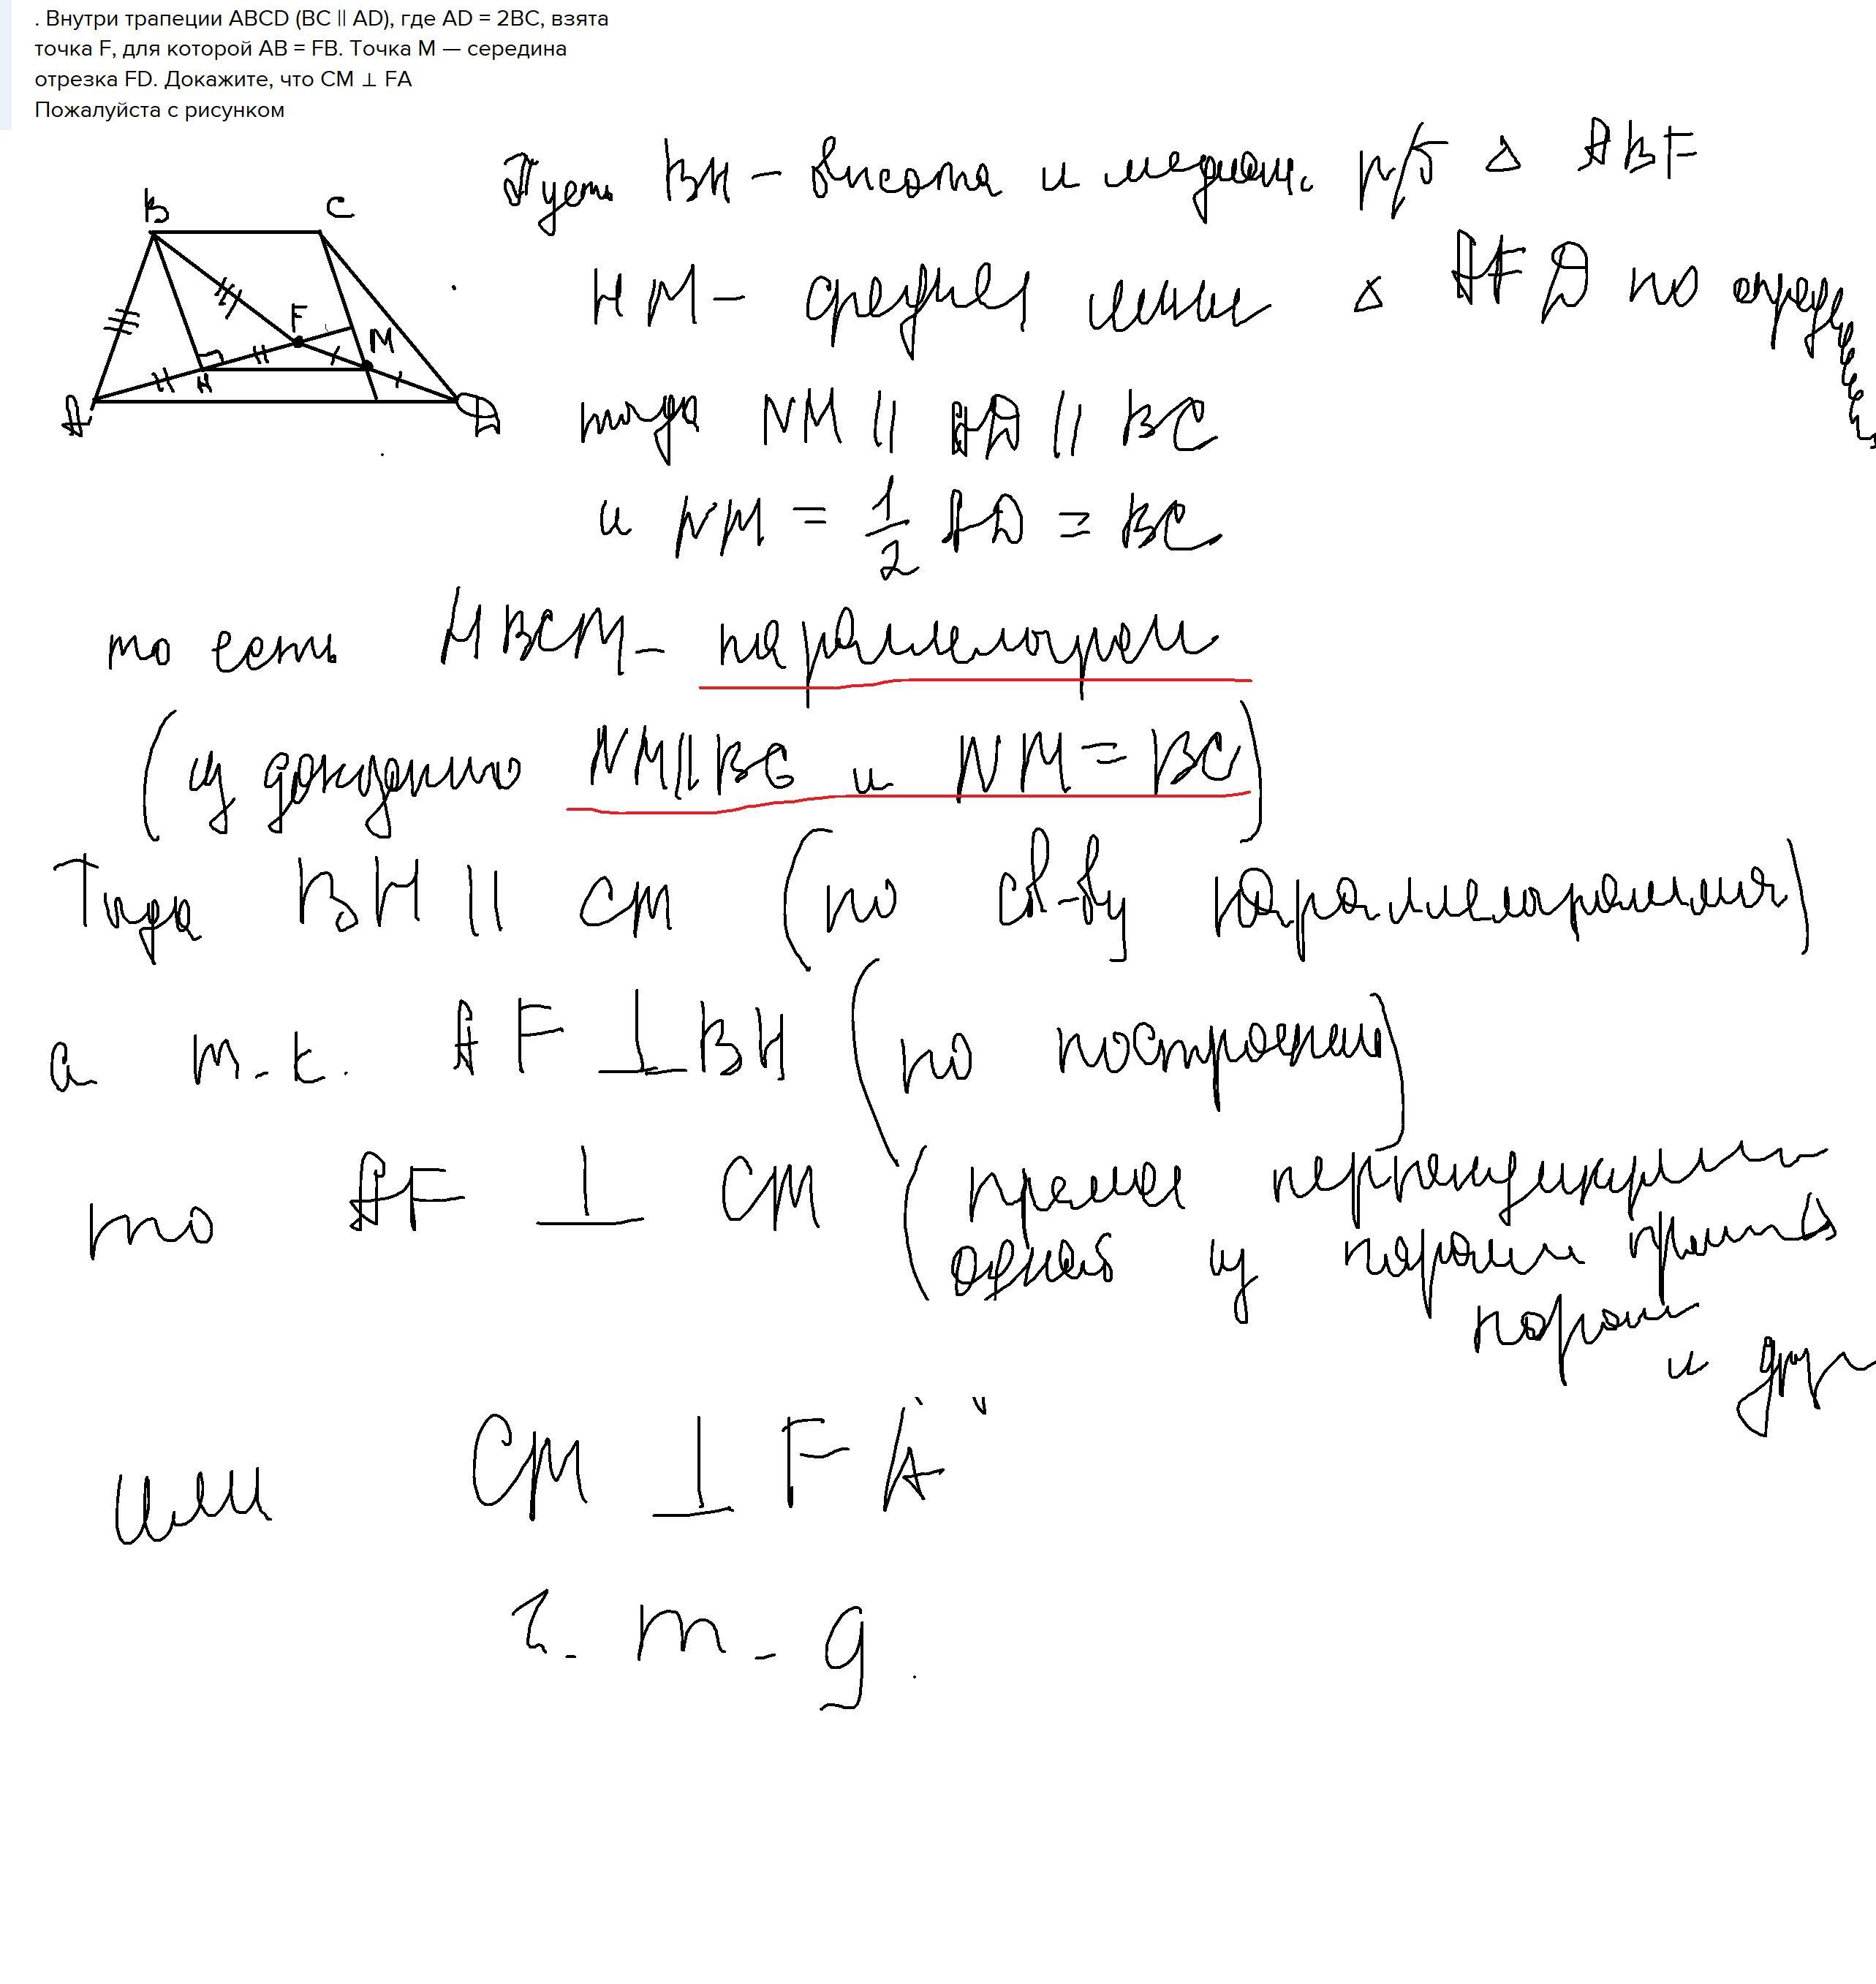 . Внутри трапеции ABCD (BC || AD), где AD = 2BC, взята
точка F, для которой AB = FB. Точка M — середина
отрезка FD. Докажите, что CM ⊥ FA
Пожалуйста с рисунком
Пусть BH - высота и медиана р/б △ ABF
B C
HM - средняя линия △ AFD по определению
F
M
H
A D
тогда NM || AD || BC
и NM = 1/2 AD = BC
то есть HBCM - параллелограм
(из доказанного NM || BC и NM = BC)
Тогда BH || CM (по св-ву параллелограмма)
а т.к. AF ⊥ BH (по построению)
то AF ⊥ CM (прямая перпендикулярна
одной из паралл прямых
и друг
или CM ⊥ FA
ч.т.д.